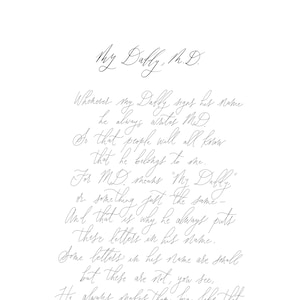 My Daddy, M.D.
Whenever my Daddy signs his name
he always writes M.D.
So that people will all know
that he belongs to me.
For M.D. means "My Daddy"
or something just the same—
And that is why he always puts
these letters in his name.
Some letters in his name are small
but these are not, you see,
He always makes them big